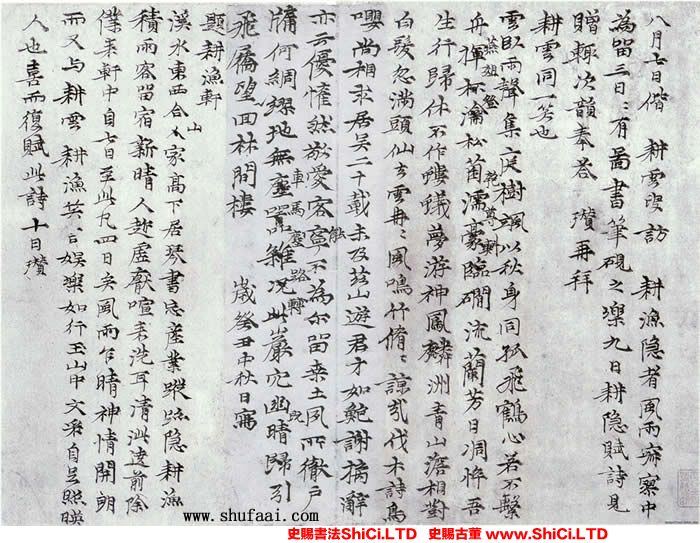 八月七日偕 耕雲叟訪 耕漁隱者風雨寂寥中
為留三日三日有圖書筆硯之樂九日耕隱賦詩見
贈輒次韻奉答 瓚再拜
耕雲同一笑也
雲臥雨聲集庭樹颯以秋身同孤飛鶴心若不繫
舟 瀹松菌濡豪臨磵流蘭芳日凋悴吾
生行歸休不作螻蟻夢游神鳳麟洲青山澹相對
白髮忽滿頭仙去雲冉冉風鳴竹脩脩諒哉伐木詩鳥
嚶尚相求居吳二十載未及茲山遊君才如鮑謝摛辭
亦云優惟然敬愛客寧不為爾留桑土夙所徹戶
牖何綢繆地無塵囂雜況此巖穴幽晴歸引
車馬 路轉
飛屩望回林間樓 歲癸丑中秋日寫
題耕漁軒
溪水東西合人家高下居琴書忘產業蹤跡隱耕漁
山
積雨客留宿新晴人趁虛厭喧來洗耳清泚遶前除
僕來軒中自七日至此凡四日矣風雨乍晴神情開朗
而又與耕雲 耕漁笑言娛樂如行玉山中文采自足照映
人也喜而復賦此詩 十日瓚
www.shufaai.com
史賜書法ShiCi.LTD 史賜古董www.ShiCi.LTD